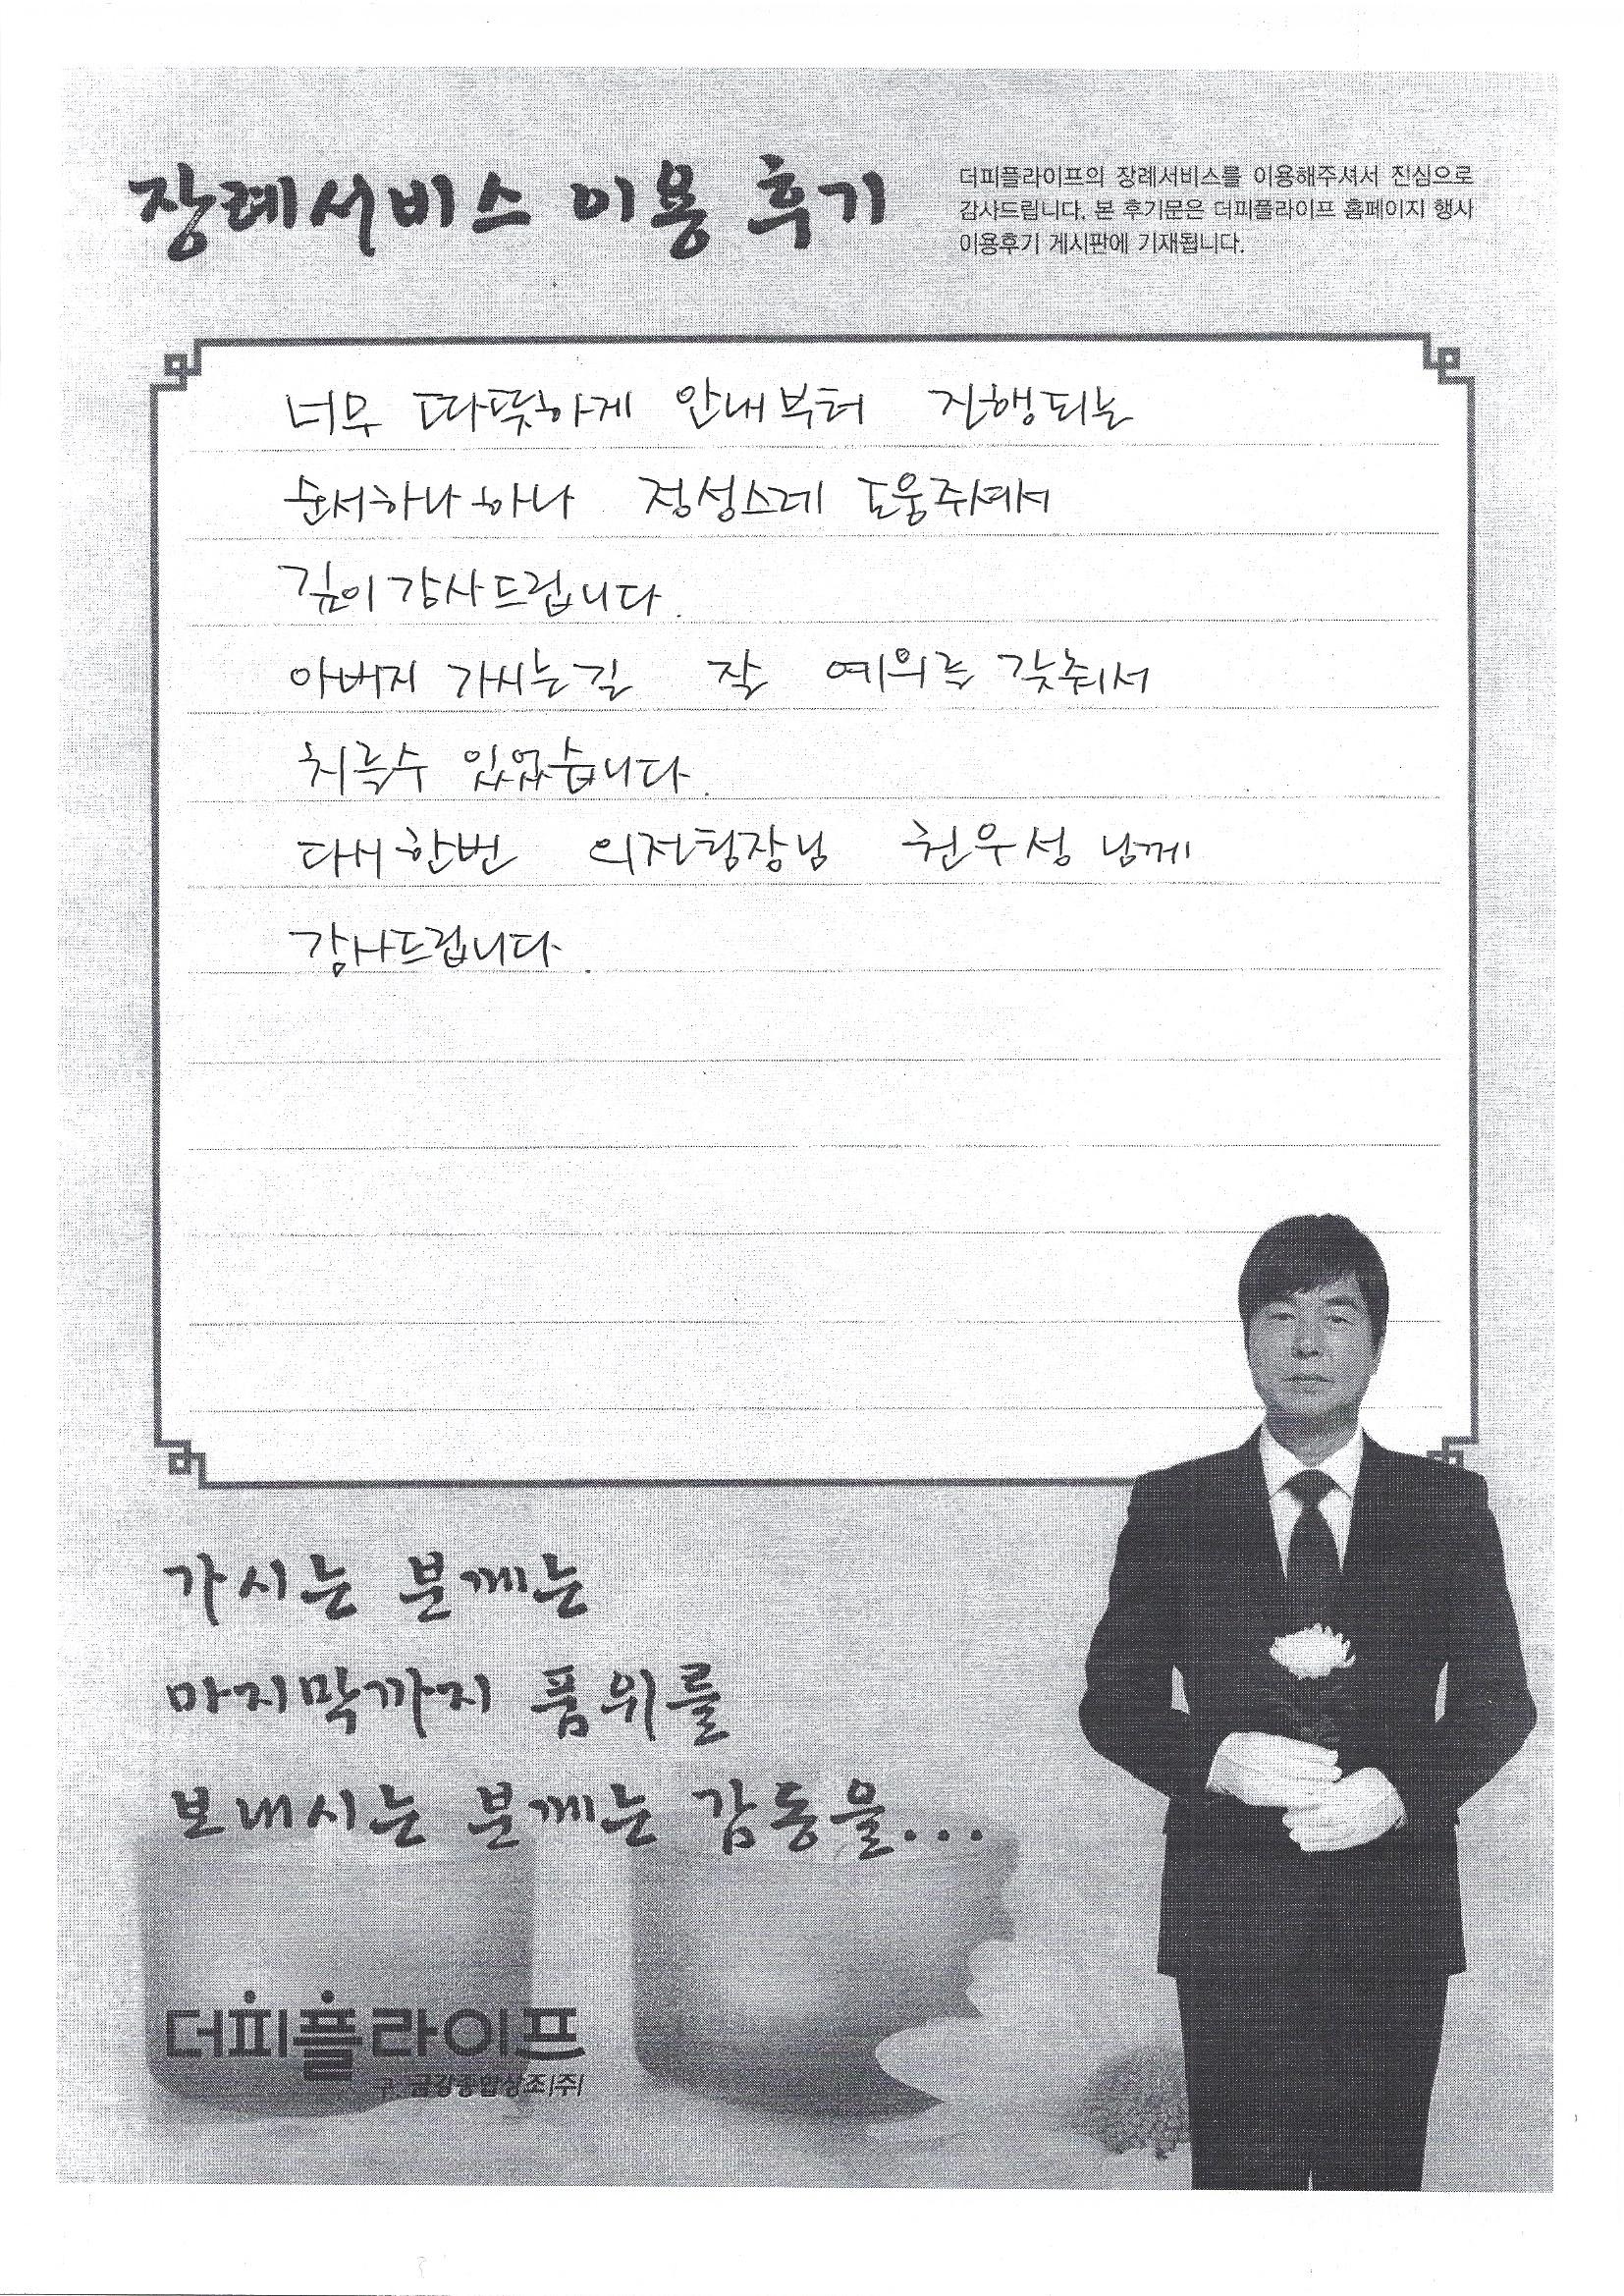 장례서비스 이용 후기
더피플라이프의 장례서비스를 이용해주셔서 진심으로
감사드립니다. 본 후기문은 더피플라이프 홈페이지 행사
이용후기 게시판에 기재됩니다.
너무 따뜻하게 안내부터 진행되는
순서하나하나 정성스레 도움주셔서
깊이 감사드립니다.
아버지 가시는길 잘 예의를 갖춰서
치를수 있었습니다.
다시한번 의전팀장님 천우성 님께
감사드립니다.
가시는 분께는
마지막까지 품위를
보내시는 분께는 감동을...
더피플라이프
구. 금강종합상조(주)